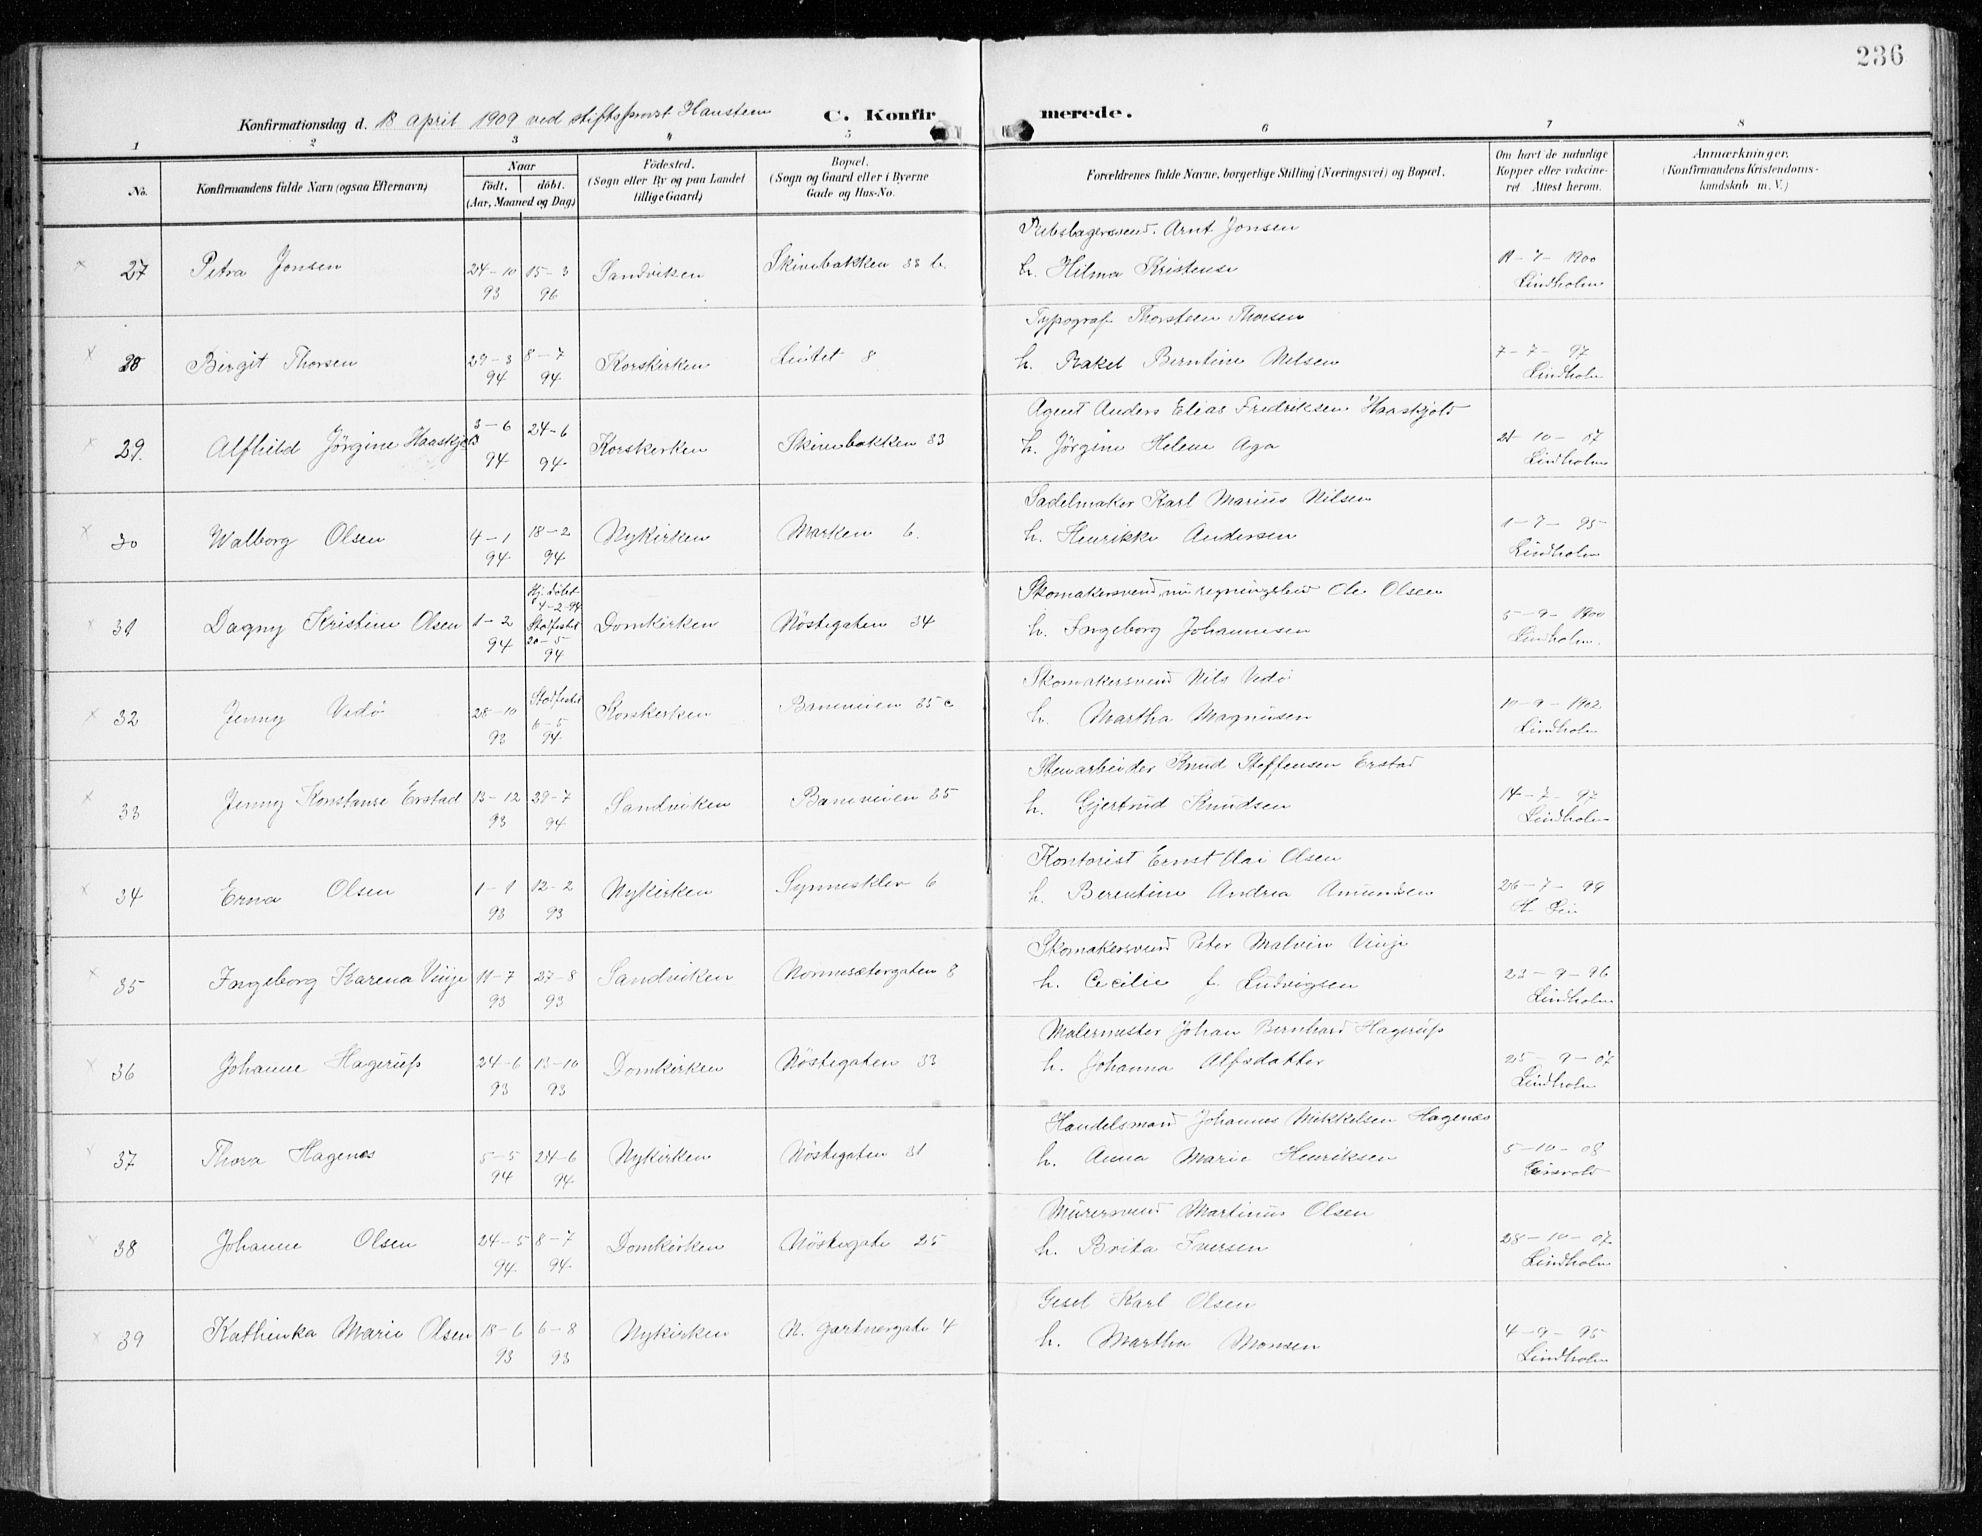 236
Konfirmationsdag d. 18 april 1909 ved stiftsprovst Hansteen
C. Konfirmerede.
1 2 3 4 5 6 7 8
No.
Konfirmandens fulde Navn (ogsaa Efternavn)
Naar
født. døbt.
(Aar, Maaned og Dag)
Fødested.
(Sogn eller By og paa Landet
tillige Gaard)
Bopæl.
(Sogn og Gaard eller i Byerne
Gade og Hus-No.
Forældrenes fulde Navne, borgerlige Stilling (Næringsvei) og Bopæl.
Om havt de naturlige
Kopper eller vakcine-
ret. Attest herom.
Anmærkninger.
(Konfirmandens Kristendoms-
kundskab m. V.)
Rebslagersvend. Arnt Jonsen
× 27 Petra Jonsen 24-10 15-3 Sandviken Skivebakken 33 b. h. Hilma Kristense 11-7-1900
93 96 Lindholm
Typograf Thorsteen Thorsen
× 28 Birgit Thorsen 29-3 8-7 Korskirken 8 h. Rakel Berntine Nilsen 7-7-97
94 94 Lindholm
Agent Anders Elias Fredriksen Haaskjold
× 29. Alfhild Jörgine 3-6 24-6 Korskirken Skivebakken 33 h. Jörgine Helene Aga 21-10-07
94 94 Lindholm
Sadelmaker Karl Marius Nilsen
× 30 Walborg Olsen 4-1 18-2 Nykirken Marken 6. h. Henrikke Andersen 1-7-95
94 94 Lindholm
Hj. döbt
4-2-94
Skomakersvend, nu regningsbud Ole Olsen
× 31 Dagny Kristine Olsen 1-2 Stadfestet Domkirken Nöstegaten 34 h. Ingeborg Johannesen 5-9-1900
94 20-5 Lindholm.
94
Skomakersvend Nils Vedö
× 32 Jenny Vedö 28-10 Stadfestet Korskirken Baneveien 35 c h. Martha Magnusen 10-9-1902
93 6-5 Lindholm
94
Stenarbeider Knud Steffensen Erstad
× 33 Jenny Konstanse Erstad 13-12 29-7 Sandviken Baneveien 35 h. Gjertrud Knudsen 14-7-97
93 94 Lindholm
Kontorist Ernst Olsen
× 34 Erna Olsen 1-1 12-2 Nykirken Synnesklev 6 h. Berentine Andrea Amundsen 26-7-99
93 93
Skomakersvend Peter Malvin Vinje
× 35 Ingeborg Karena Vinje 11-7 27-8 Sandviken Nonnesetergaten 8 h. Cecilie f. Ludvigsen 23-9-96
93 93 Lindholm
Malermester Johan Bernhard Hagerup
× 36 Johanne Hagerup 24-6 13-10 Domkirken Nöstegaten 33 h. Johanna Alfsdatter 25-9-07
93 93 Lindholm
Handelsmand Johannes Mikkelsen Hagenes
× 37 Thora Hagenes 5-5 24-6 Nykirken Nöstegaten 31 h. Anna Marie Henriksen 5-10-08
94 94
Murersvend Martinus Olsen
× 38 Johanne Olsen 24-5 8-7 Domkirken Nöstegate 25 h. Brita Iversen 28-10-07
94 94 Lindholm
Gesel Karl Olsen
× 39 Kathinka Marie Olsen 18-6 6-8 Nykirken N. Gartnergate 4 h. Martha Monsen 4-9-95
93 93 Lindholm